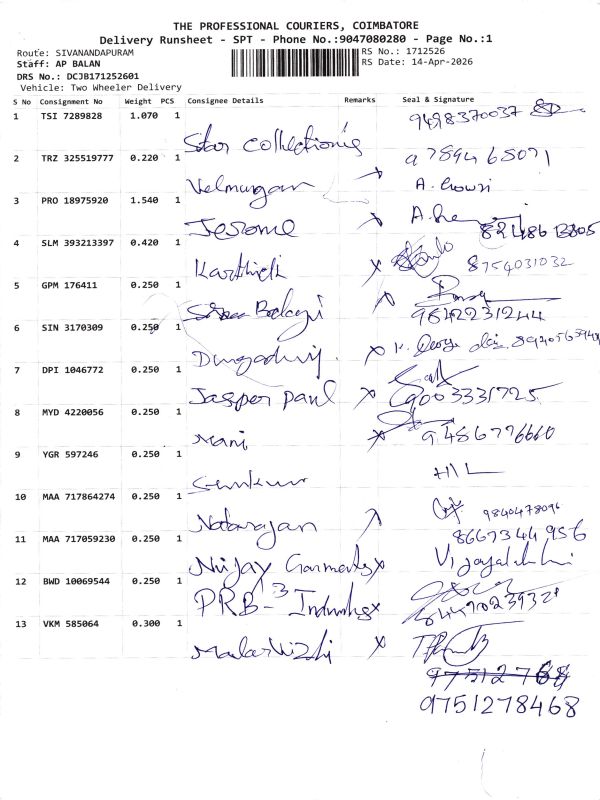 THE PROFESSIONAL COURIERS, COIMBATORE
Delivery Runsheet - SPT - Phone No.:9047080280 - Page No.:1
Route: SIVANANDAPURAM
RS No.: 1712526
Staff: AP BALAN
RS Date: 14-Apr-2026
DRS No.: DCJB171252601
Vehicle: Two Wheeler Delivery
S No Consignment No Weight PCS Consignee Details Remarks Seal & Signature
1 TSI 7289828 1.070 1 Star Collections 9498370037
2 TRZ 325519777 0.220 1 Velmurgan A. Gowri
3 PRO 18975920 1.540 1 Jerome
4 SLM 393213397 0.420 1 Karthick 8754031032
5 GPM 176411 0.250 1 Balaji 9842231244
6 SIN 3170309 0.250 1 K. George
7 DPI 1046772 0.250 1 Jasper paul 9003331725
8 MYD 4220056 0.250 1 Mani 9486776660
9 YGR 597246 0.250 1 H/L
10 MAA 717864274 0.250 1 Natarajan
11 MAA 717059230 0.250 1 Nijay Garments 8667344956
Vijayalakshmi
12 BWD 10069544 0.250 1 PRB-3 Industries
13 VKM 585064 0.300 1 Malarvizhi
9751278468